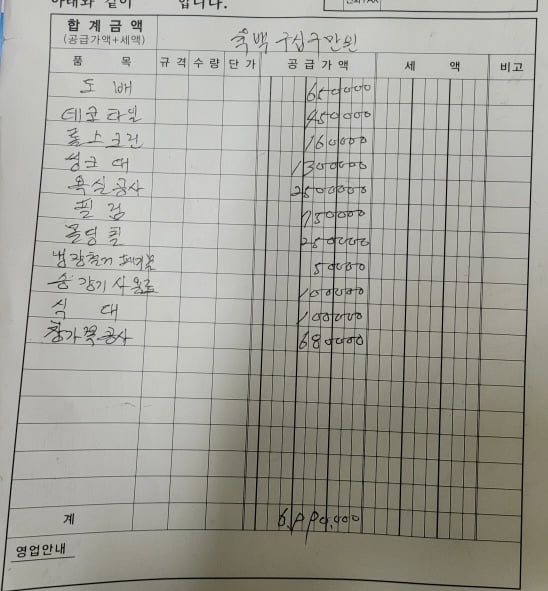 아래와 같이 입니다.
합 계 금 액
(공급가액+세액)
육백 구십구만원
품 목 규격 수량 단가 공급가액 세 액 비고
도 배 650000
데코타일 450000
롤스크린 160000
씽크 대 1300000
욕실공사 2500000
필 름 750000
몰딩 칠 250000
50000
승강기사용료 100000
식 대 100000
680000
계 6,990,000
영업안내